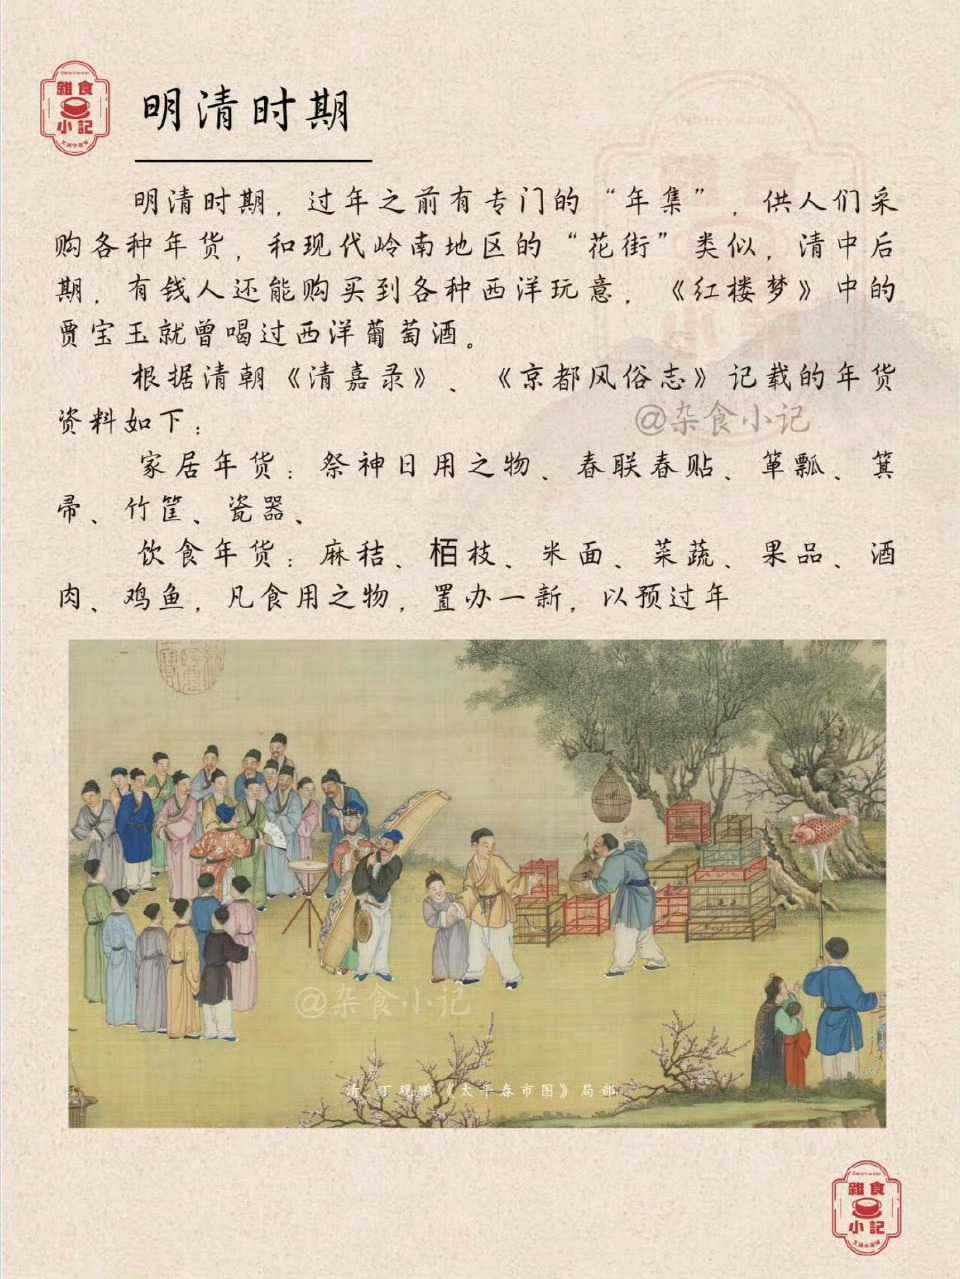 雜食
小記
明清时期
明清时期，过年之前有专门的“年集”，供人们采
购各种年货，和现代岭南地区的“花街”类似，清中后
期，有钱人还能购买到各种西洋玩意，《红楼梦》中的
贾宝玉就曾喝过西洋葡萄酒。
根据清朝《清嘉录》、《京都风俗志》记载的年货
资料如下：
@杂食小记
家居年货：祭神日用之物、春联春贴、箪瓢、箕
帚、竹筐、瓷器、
饮食年货：麻秸、栢枝、米面、菜蔬、果品、酒
肉、鸡鱼，凡食用之物，置办一新，以预过年
@杂食小记
清 丁观鹏《太平春市图》局部
雜食
小記